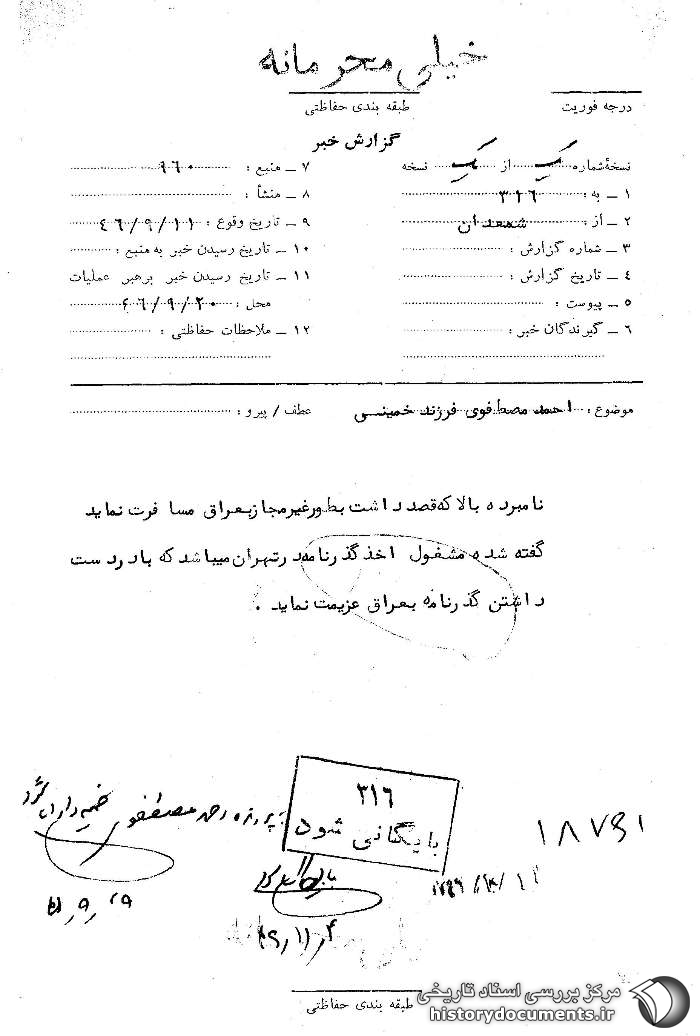 خیلی محرمانه
درجه فوریت
طبقه بندی حفاظتی
گزارش خبر
نسخهٔ شماره یک از یک نسخه
۱ ـ به : ۳۱۶
۲ ـ از : شمعدان
۳ ـ شماره گزارش :
۴ ـ تاریخ گزارش :
۵ ـ پیوست :
۶ ـ گیرندگان خبر :
۷ ـ منبع : ۹۶۰
۸ ـ منشأ :
۹ ـ تاریخ وقوع : ۴۶/۹/۱۱
۱۰ ـ تاریخ رسیدن خبر به منبع :
۱۱ ـ تاریخ رسیدن خبر برهبر عملیات
محل : ۴۶/۹/۲۰
۱۲ ـ ملاحظات حفاظتی :
موضوع : احمد مصطفوی فرزند خمینی
عطف / پیرو :
نامبرده بالا که قصد داشت بطور غیر مجاز بعراق مسافرت نماید
گفته شده مشغول اخذ گذرنامه در تهران میباشد که با در دست
داشتن گذرنامه بعراق عزیمت نماید .
۳۱۶
بایگانی شود
طبقه بندی حفاظتی
مرکز بررسی اسناد تاریخی
historydocuments.ir